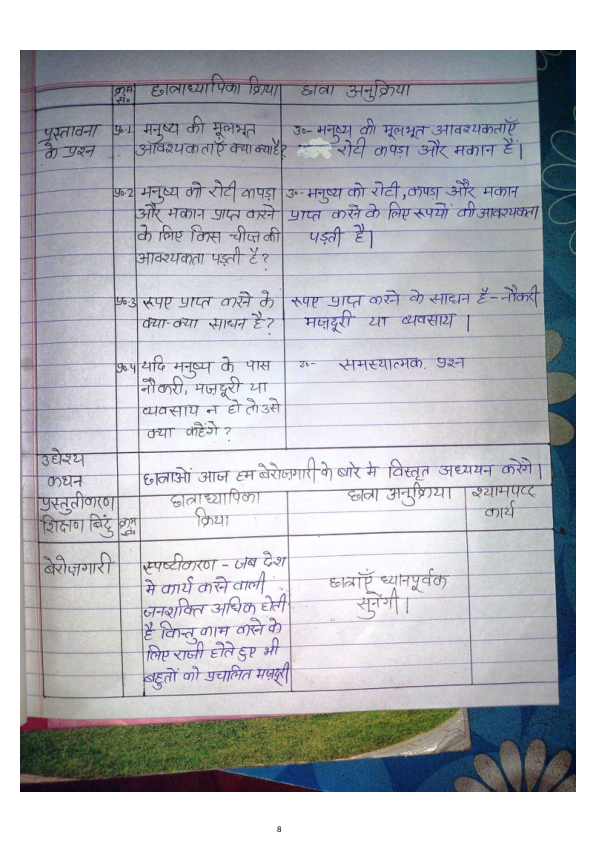 क्रम सं० छात्राध्यापिका क्रिया छात्रा अनुक्रिया
प्रस्तावना के प्रश्न
प्र०1 मनुष्य की मूलभूत
आवश्यकताएँ क्या क्या है?
उ०- मनुष्य की मूलभूत आवश्यकताएँ
रोटी कपड़ा और मकान हैं।
प्र०2 मनुष्य को रोटी कपड़ा
और मकान प्राप्त करने
के लिए किस चीज की
आवश्यकता पड़ती है?
उ०- मनुष्य को रोटी, कपड़ा और मकान
प्राप्त करने के लिए रूपयों की आवश्यकता
पड़ती है।
प्र०3 रूपए प्राप्त करने के
क्या-क्या साधन है?
रूपए प्राप्त करने के साधन है - नौकरी
मज़दूरी या व्यवसाय।
प्र०4 यदि मनुष्य के पास
नौकरी, मज़दूरी या
व्यवसाय न हो तो उसे
क्या कहेंगे?
उ०- समस्यात्मक प्रश्न
उद्येश्य
कथन
छात्राओं आज हम बेरोज़गारी के बारे मे विस्तृत अध्ययन करेंगे।
प्रस्तुतीकरण
शिक्षण बिंदु
क्रम सं०
छात्राध्यापिका
क्रिया
छात्रा अनुक्रिया
श्यामपट्ट
कार्य
बेरोज़गारी
स्पष्टीकरण - जब देश
मे कार्य करने वाली
जनशक्ति अधिक होती
है किन्तु काम करने के
लिए राजी होते हुए भी
बहुतों को प्रचालित मज़दूरी
छात्राएँ ध्यानपूर्वक
सुनेंगी।
8